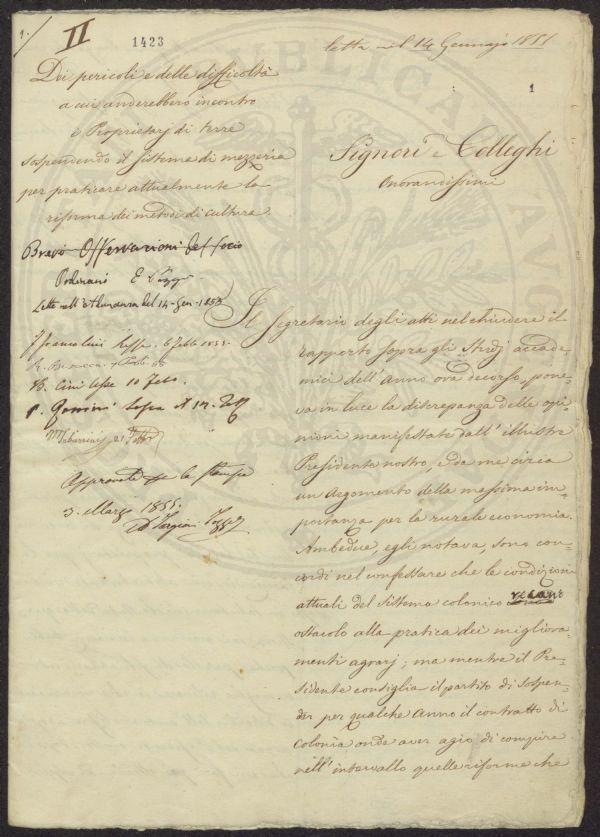 1./
II
1423
letta il 14 Gennajo 1855
1
Dei pericoli e delle difficoltà
a cui anderebbero incontro
i Proprietarj di terre
sospendendo il sistema di mezzeria
per praticare attualmente la
riforma dei metodi di cultura.
Bravo Osservazioni del Socio
Ordinario E.
Lette nell'Adunanza del 14 Gen. 1855
Signori e Colleghi
Onorandissimi
Francesco lesse 6 Febb 1855.
B. Cini lesse 10 Febo.
21 Febb
Approvata per la stampa
3. Marzo 1855.
Il Segretario degli atti nel chiudere il
rapporto sopra gli studj accade-
mici dell'Anno ora decorso, pone-
va in luce la discrepanza delle opi-
nioni manifestate dall'illustre
Presidente nostro, e da me circa
un Argomento della massima im-
portanza per la rurale economia.
Ambedue, egli notava, sono con-
cordi nel confessare che le condizioni
attuali del sistema colonico recano
ostacolo alla pratica dei migliora-
menti agrarj; ma mentre il Pre-
sidente consiglia il partito di sospen-
der per qualche Anno il contratto di
Colonìa onde aver agio di compire
nell'intervallo quelle riforme che
PUBLICAE